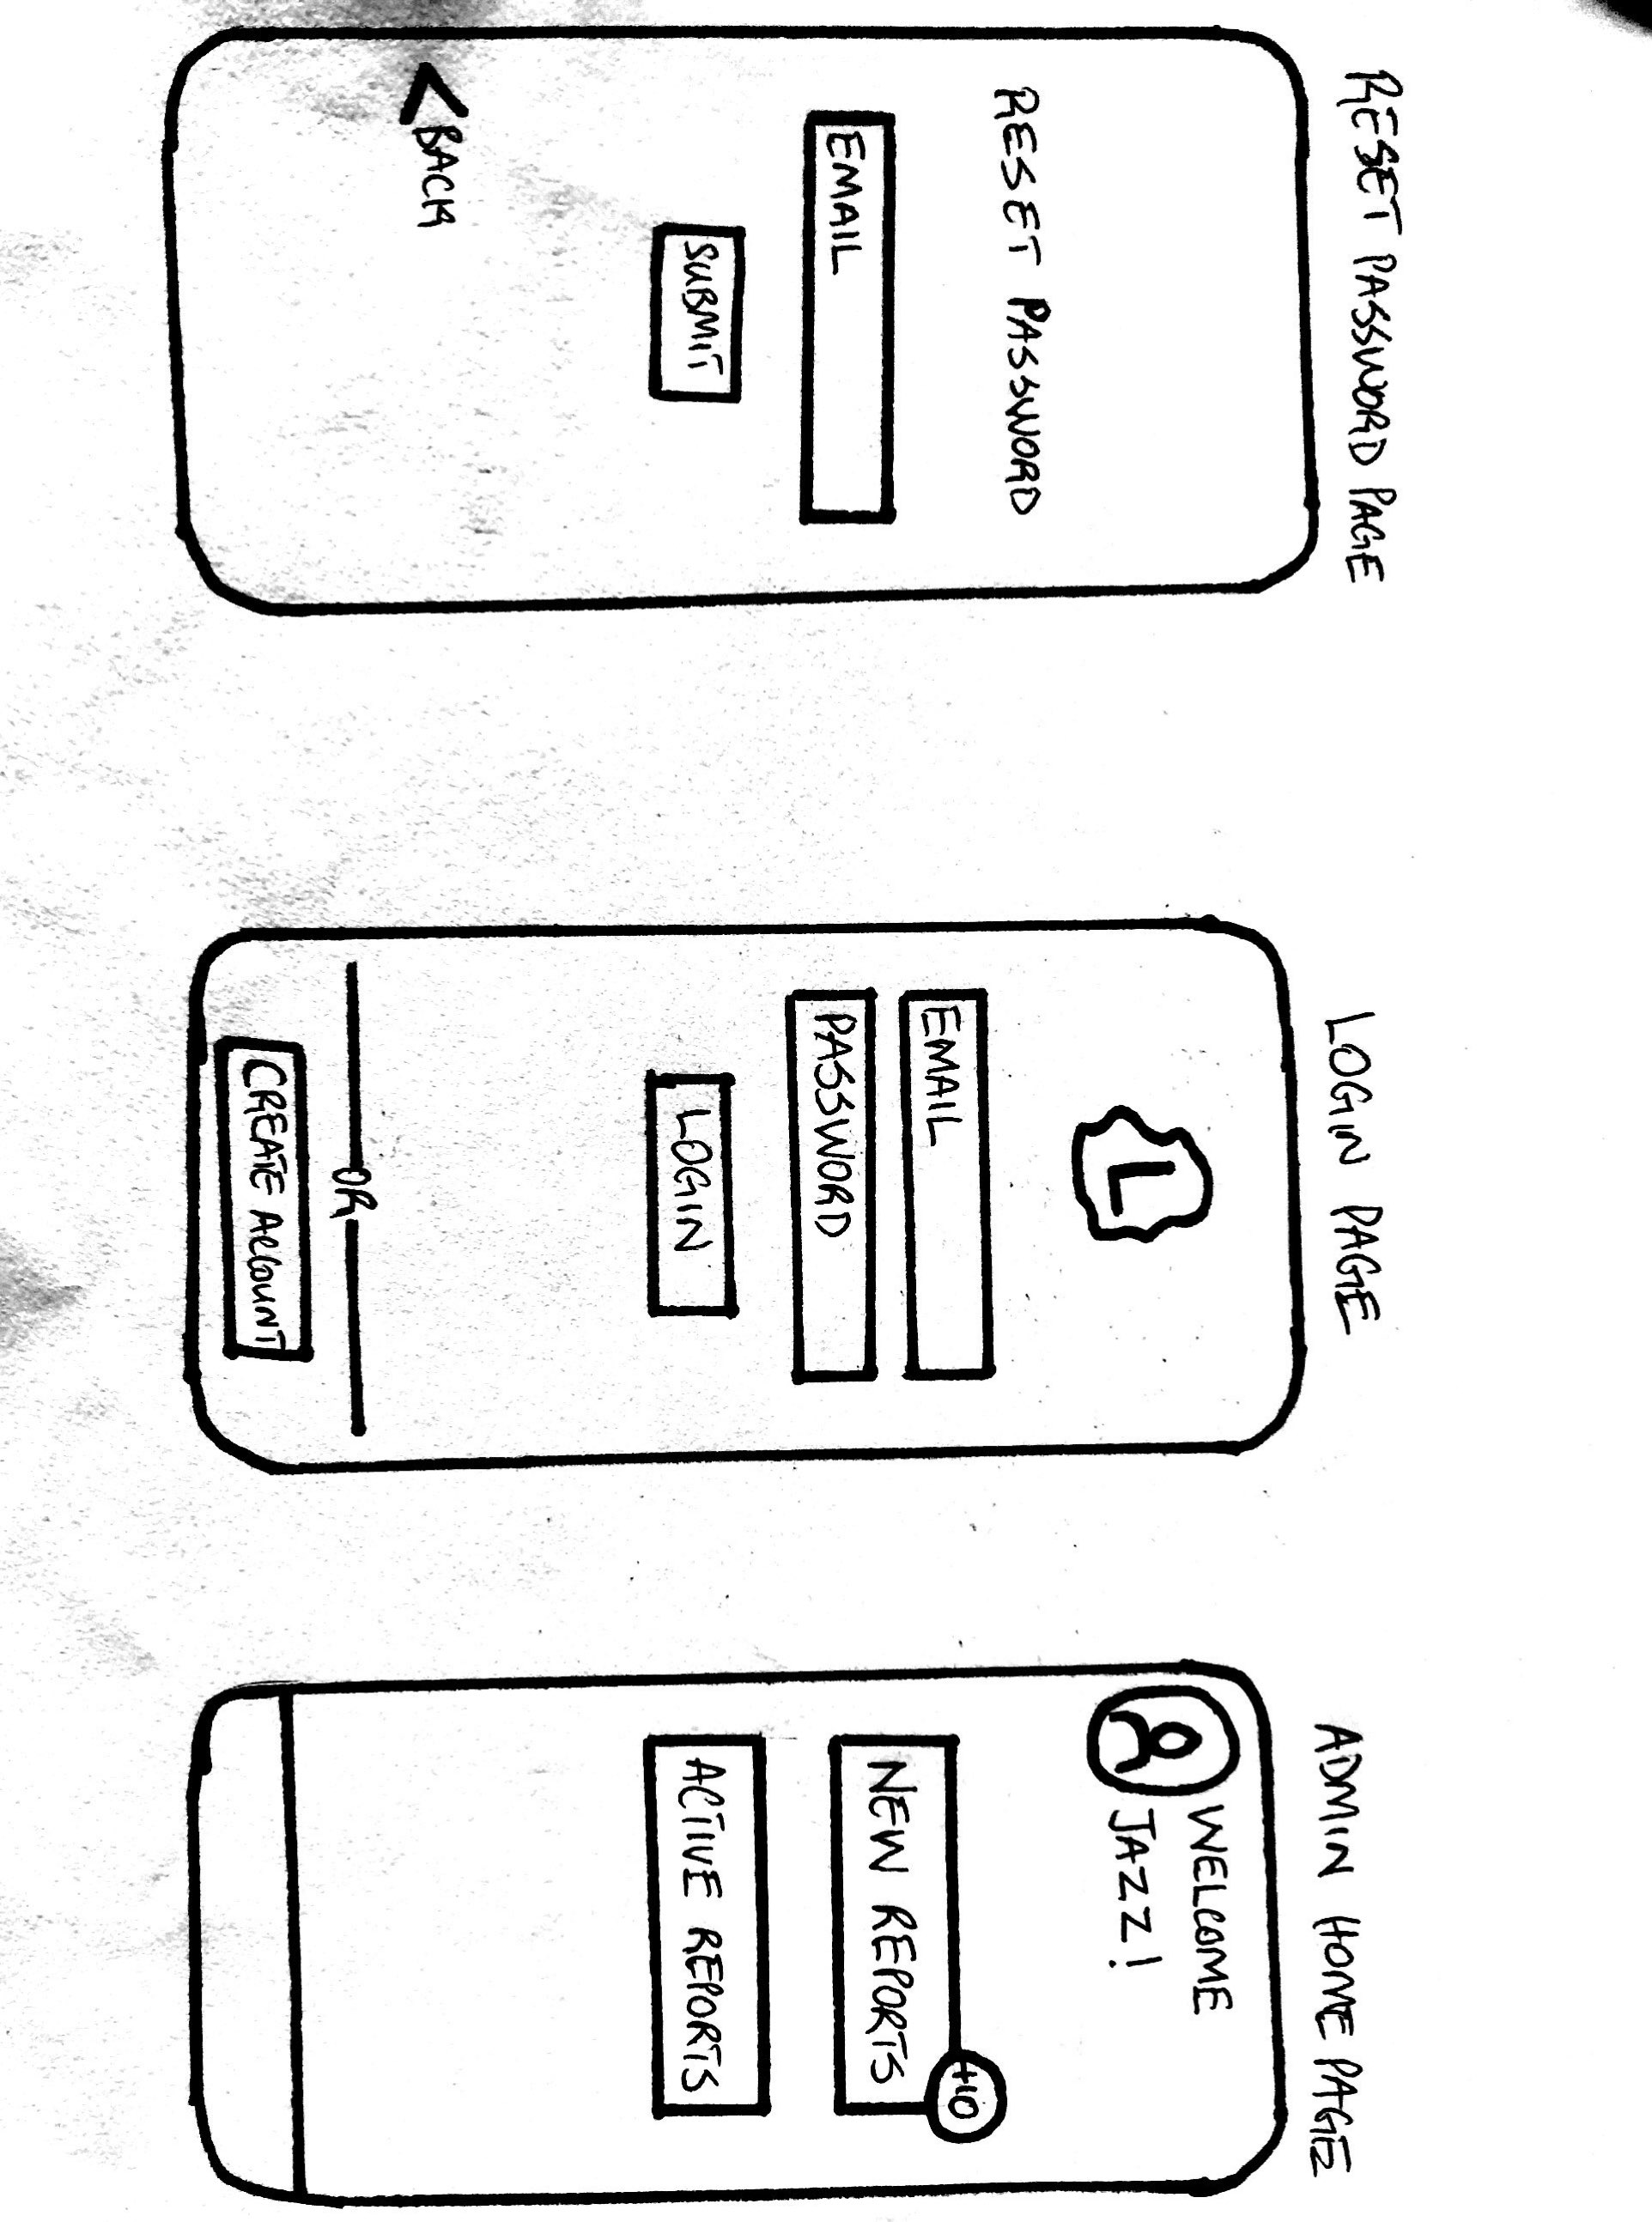 RESET PASSWORD PAGE
RESET PASSWORD
EMAIL
SUBMIT
< BACK
LOGIN PAGE
L
EMAIL
PASSWORD
LOGIN
OR
CREATE ACCOUNT
ADMIN HOME PAGE
WELCOME
JAZZ!
+10
NEW REPORTS
ACTIVE REPORTS